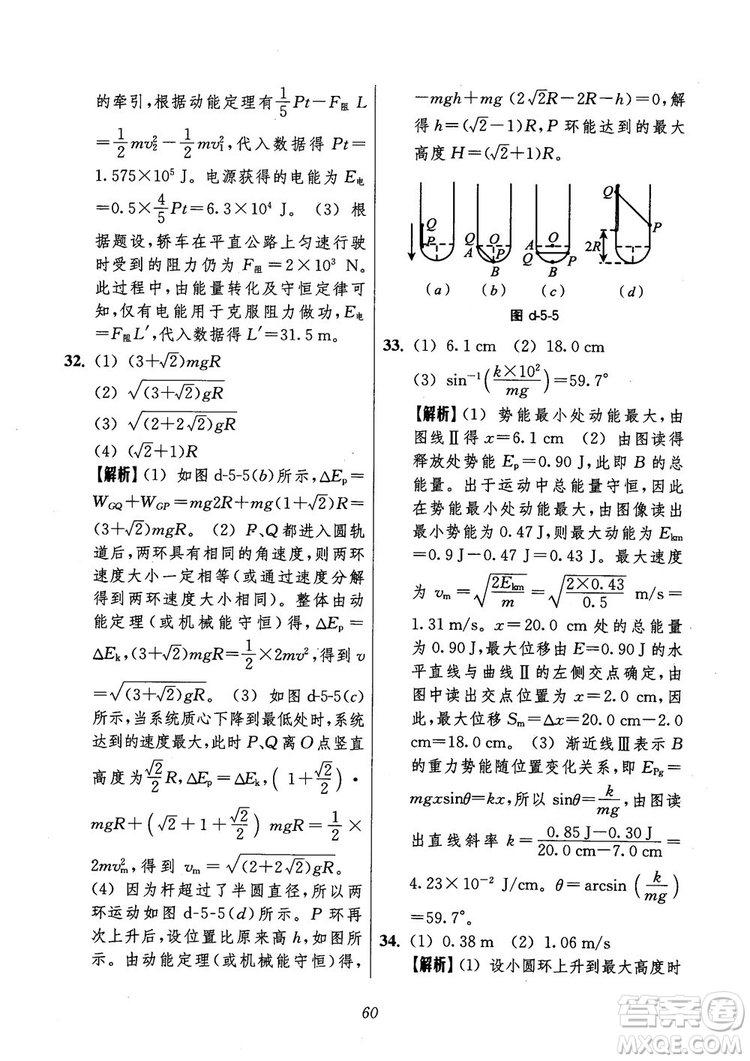 的牵引,根据动能定理有\frac{1}{5}Pt-F阻 L
=\frac{1}{2}mv₂²-\frac{1}{2}mv₁²,代入数据得 Pt=
1.575×10⁵ J。电源获得的电能为 E电
=0.5×\frac{4}{5}Pt=6.3×10⁴ J。(3) 根
据题设,轿车在平直公路上匀速行驶
时受到的阻力仍为 F阻=2×10³ N。
此过程中,由能量转化及守恒定律可
知,仅有电能用于克服阻力做功,E电
=F阻L′,代入数据得 L′=31.5 m。
32. (1) (3+√2)mgR
(2) √((3+√2)gR)
(3) √((2+2√2)gR)
(4) (√2+1)R
【解析】(1) 如图 d-5-5(b)所示,ΔEp=
W_GQ+W_GP=mg2R+mg(1+√2)R=
(3+√2)mgR。(2) P、Q都进入圆轨
道后,两环具有相同的角速度,则两环
速度大小一定相等(或通过速度分解
得到两环速度大小相同)。整体由动
能定理(或机械能守恒)得,ΔEp=
ΔEk,(3+√2)mgR=\frac{1}{2}×2mv²,所以 v
=√((3+√2)gR)。(3) 如图 d-5-5(c)
所示,当系统质心下降到最低处时,系统
达到的速度最大,此时 P、Q离O点竖直
高度为\frac{√2}{2}R,ΔEp=ΔEk,(1+\frac{√2}{2})•
mgR+(√2+1+\frac{√2}{2})mgR=\frac{1}{2}×
2mvm²,得到 vm=√((2+2√2)gR)。
(4) 因为杆超过了半圆直径,所以两
环运动如图 d-5-5(d)所示。P 环再
次上升后,设位置比原来高h,如图所
示。由动能定理(或机械能守恒)得,
-mgh+mg(2√2R-2R-h)=0,解
得 h=(√2-1)R,P 环能达到的最大
高度 H=(√2+1)R。
Q
P
(a)
Q O
A P
B
(b)
O
A P
Q
B
(c)
Q
P
2R
(d)
图 d-5-5
33. (1) 6.1 cm (2) 18.0 cm
(3) sin⁻¹(\frac{k×10²}{mg})=59.7°
【解析】(1) 势能最小处动能最大,由
图线Ⅱ得 x=6.1 cm (2) 由图读得
释放处势能 Ep=0.90 J,此即 B 的总
能量。出于运动中总能量守恒,因此
在势能最小处动能最大,由图像读出
最小势能为 0.47 J,则最大动能为 Ekm
=0.9 J-0.47 J=0.43 J。最大速度
为 vm=√\frac{2Ekm}{m}=√\frac{2×0.43}{0.5} m/s=
1.31 m/s。x=20.0 cm 处的总能量
为 0.90 J,最大位移由 E=0.90 J 的水
平直线与曲线Ⅱ的左侧交点确定,由
图中读出交点位置为 x=2.0 cm。
因此,最大位移 Sm=Δx=20.0 cm-2.0
cm=18.0 cm。(3) 渐近线Ⅲ表示 B
的重力势能随位置变化关系,即 EPg=
mgxsinθ=kx,所以 sinθ=\frac{k}{mg},由图读
出直线斜率 k=\frac{0.85 J-0.30 J}{20.0 cm-7.0 cm}=
4.23×10⁻² J/cm。θ=arcsin(\frac{k}{mg})
=59.7°。
34. (1) 0.38 m (2) 1.06 m/s
【解析】(1) 设小圆环上升到最大高度时
60
答案圈
MXQE.COM